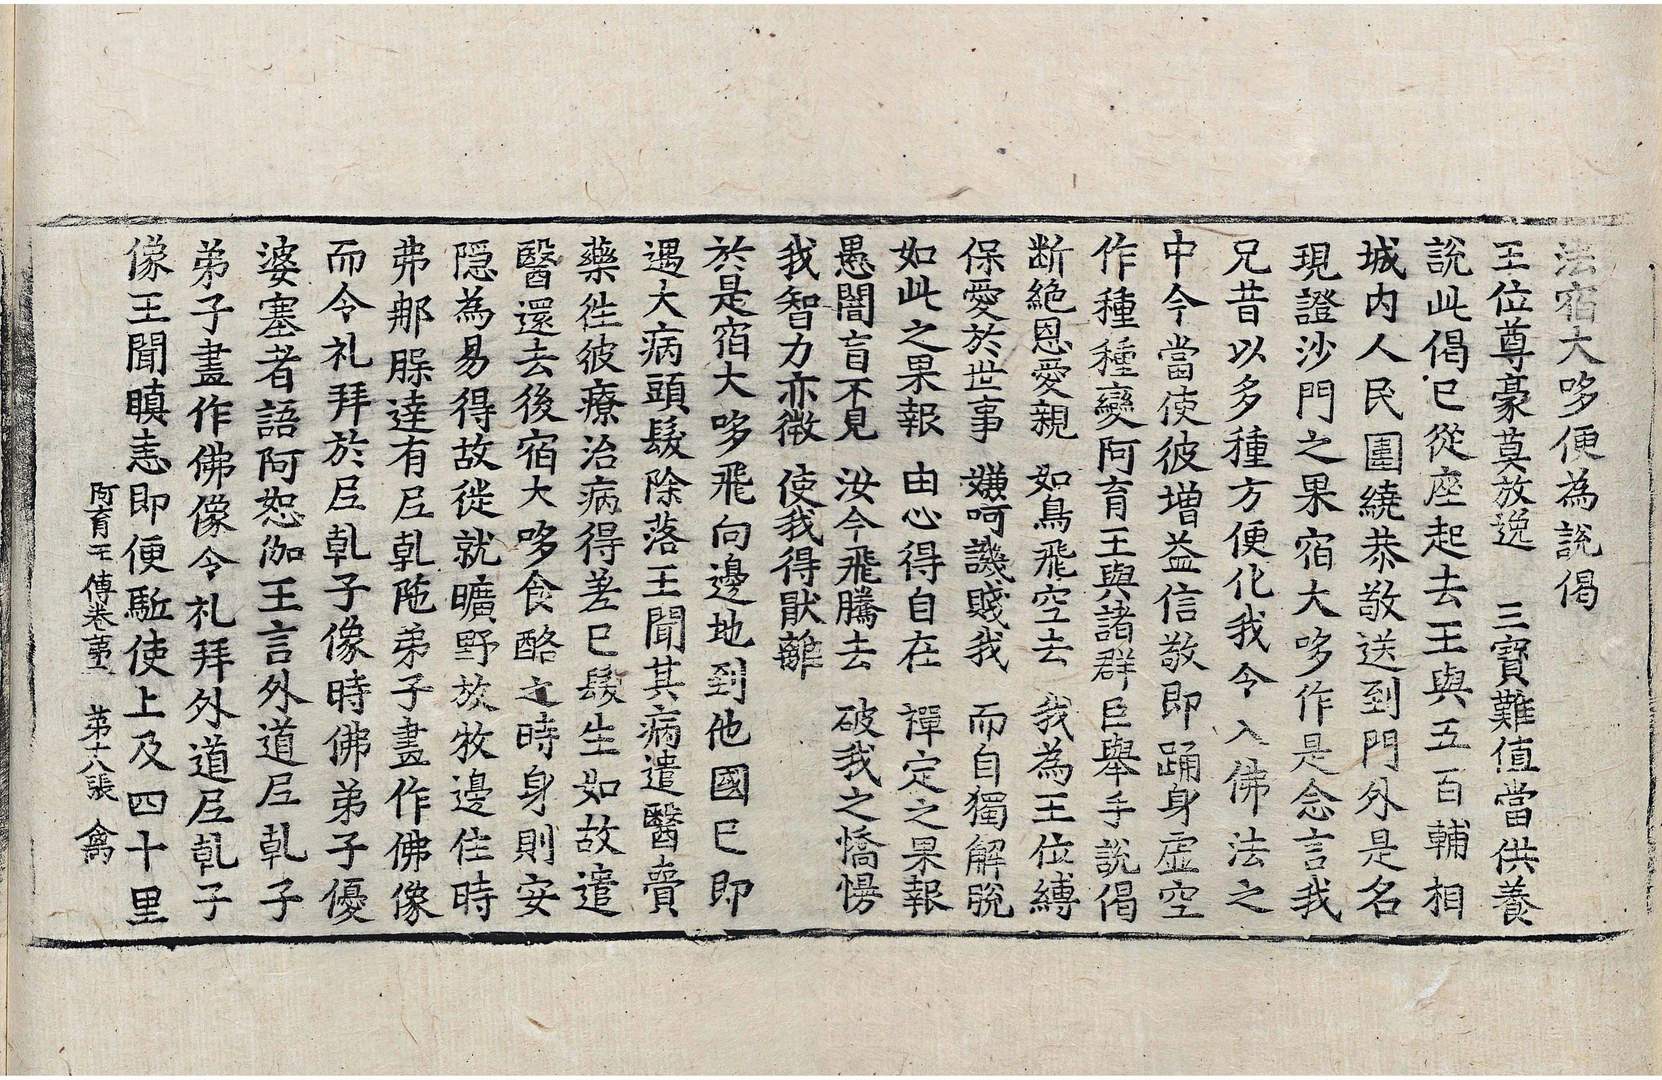 法宿大哆便為說偈
王位尊豪莫放逸　三寶難值當供養
說此偈已從座起去王與五百輔相
城內人民圍繞恭敬送到門外是名
現證沙門之果宿大哆作是念言我
兄昔以多種方便化我令入佛法之
中今當使彼增益信敬即踊身虛空
作種種變阿育王與諸群臣舉手說偈
断絕恩愛親　如鳥飛空去　我為王位縛
保愛於世事　嫌呵譏賤我　而自獨解脫
如此之果報　由心得自在　禪定之果報
愚闇盲不見　汝今飛騰去　破我之憍慢
我智力亦微　使我得猒離
於是宿大哆飛向邊地到他國已即
遇大病頭髮除落王聞其病遣醫賫
藥徃彼療治病得差已髮生如故遣
醫還去後宿大哆食酪之時身則安
隱為易得故徙就曠野放牧邊住時
弗那𦡀達有尼乹陁弟子畫作佛像
而令礼拜於尼乹子像時佛弟子優
婆塞者語阿恕伽王言外道尼乹子
弟子畫作佛像令礼拜外道尼乹子
像王聞瞋恚即便駈使上及四十里
阿育王傳卷第　第十八張　禽